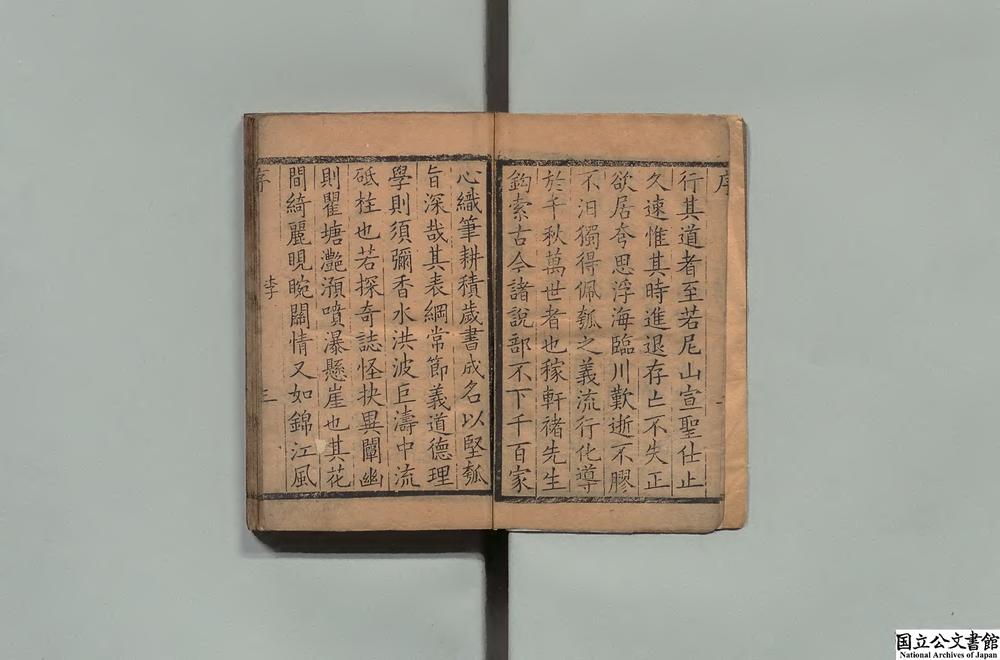 序
行其道者至若尼山宣聖仕止
久速惟其時進退存亡不失正
欲居夸思浮海臨川歎逝不膠
不汨獨得佩瓠之義流行化導
於千秋萬世者也稼軒褚先生
鈎索古今諸說部不下千百家
心織筆耕積歲書成名以堅瓠
旨深哉其表綱常節義道德理
學則須彌香水洪波巨濤中流
砥柱也若探奇誌怪抉異闡幽
則瞿塘灔澦噴瀑懸崖也其花
間綺麗晛睆關情又如錦江風
序
李
三
国立公文書館
National Archives of Japan